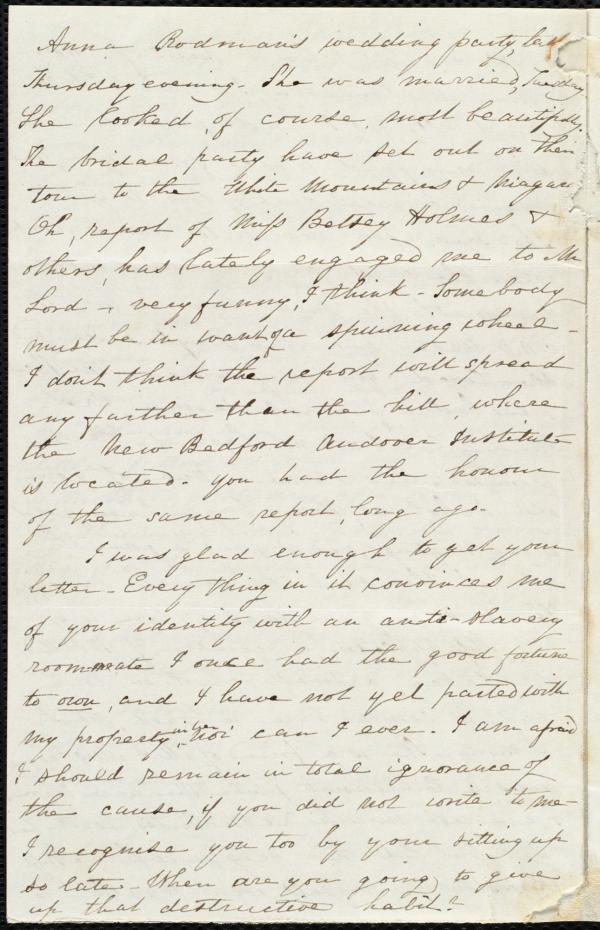 Anna Rodman's wedding party, last
Thursday evening - She was married, Tuesday
She looked, of course, most beautifully.
The bridal party have set out on their
tour to the White Mountains & Niagara
Oh, report of Miss Betsey Holmes &
others, has lately engaged me to Mr
Lord - very funny, I think - Somebody
must be in want of a spinning wheel -
I don't think the report will spread
any farther than the hill, where
the New Bedford Andover Institute
is located. You had the honour
of the same report, long ago.
I was glad enough to get your
letter - Everything in it convinces me
of your identity with an anti-slavery
room-mate I once had the good fortune
to own, and I have not yet parted with
my property in her, nor can I ever. I am afraid
I should remain in total ignorance of
the cause, if you did not write to me -
I recognise you too by your sitting up
so late - When are you going to give
up that destructive habit?